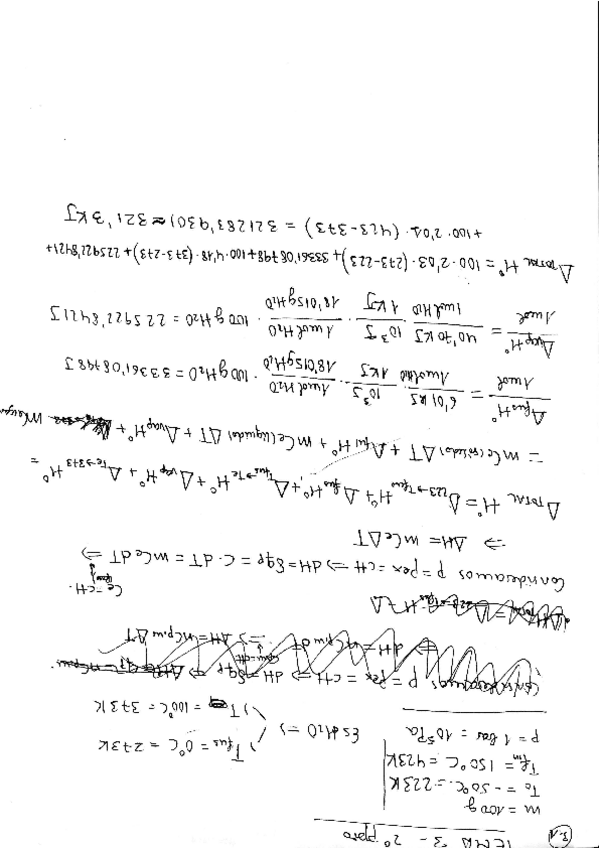 3.1
TEMA 3 - 2º
m = 100 g
T₀ = -50ºC = 223K
T_fin = 150ºC = 423K
p = 1 bar = 10⁵ Pa
Es H₂O ⇒
T_fus = 0ºC = 273K
T = 100ºC = 373K
Consideramos p = p_ex = cte ⇒ dH = δq_p ⇒
Consideramos p = p_ex = cte ⇒ dH = δq_p = C · dT = m Ce dT ⇒
Ce = cte.
⇒ ΔH = m Ce ΔT
Δ_TOTAL H° = Δ_223→Tfus H° + Δ_fus H° + Δ_Tfus→Te H° + Δ_vap H° + Δ_Te→373 H° =
= m Ce (sólido) ΔT + Δ_fus H° + m Ce (líquido) ΔT + Δ_vap H° +
Δ_fus H° / 1mol = 6'01 KJ / 1mol H₂O · 10³ J / 1KJ · 1mol H₂O / 18'015g H₂O · 100g H₂O = 33361'08798 J
Δ_vap H° / 1mol = 40'70 KJ / 1mol H₂O · 10³ J / 1KJ · 1mol H₂O / 18'015g H₂O · 100g H₂O = 225922'8421 J
Δ_TOTAL H° = 100 · 2'03 · (273-223) + 33361'08798 + 100 · 4'18 · (373-273) + 225922'8421 +
+ 100 · 2'01 · (423-373) = 321283'9301 ≈ 321'3 KJ